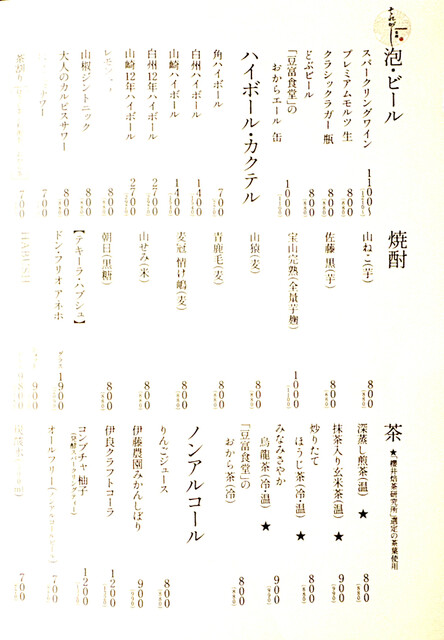 泡・ビール
スパークリングワイン 1100〜
プレミアムモルツ 生 800
クラシックラガー 瓶 800
どぶビール 800
「豆富食堂」の
おからエール 缶 1000
ハイボール・カクテル
角ハイボール 700
白州ハイボール 1400
山崎ハイボール 1400
白州12年ハイボール 2700
山崎12年ハイボール 2700
山椒ジントニック 800
大人のカルピスサワー 800
サワー 700
茶割り 700
焼酎
山ね・こ(芋) 800
佐藤 黒(芋) 800
宝山完熟(全量芋麹) 1000
山猿(麦) 800
青鹿毛(麦) 800
麦冠 情け嶋(麦) 800
山せみ(米) 800
朝日(黒糖) 800
【テキーラ・ハブシュ】
ドン・フリオ アネホ グラス 1900
900
茶 ★「櫻井焙茶研究所」選定の茶葉使用
深蒸し煎茶(温) ★ 800
抹茶入り玄米茶(温) ★ 900
炒りたて
ほうじ茶(冷・温) ★ 800
みなみさやか
烏龍茶(冷・温) ★ 900
「豆富食堂」の
おから茶(冷) 800
ノンアルコール
りんごジュース 800
伊藤農園みかんしぼり 900
伊良クラフトコーラ 1200
コンブチャ 柚子
(発酵スパークリングティー) 1200
オールフリー(ノンアルコールビール) 700
700